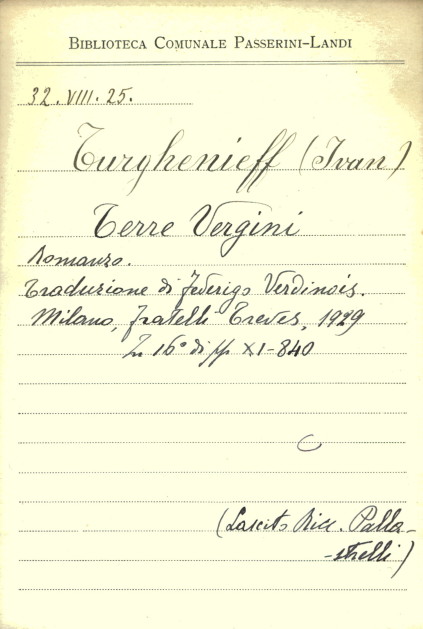 BIBLIOTECA COMUNALE PASSERINI-LANDI
32.VIII.25.
Turghenieff (Ivan)
Terre Vergini
Romanzo.
Traduzione di Federigo Verdinois.
Milano, fratelli Treves, 1929
In 16° di pp XI-840
(Lascito Ricc. Palla-
-strelli)